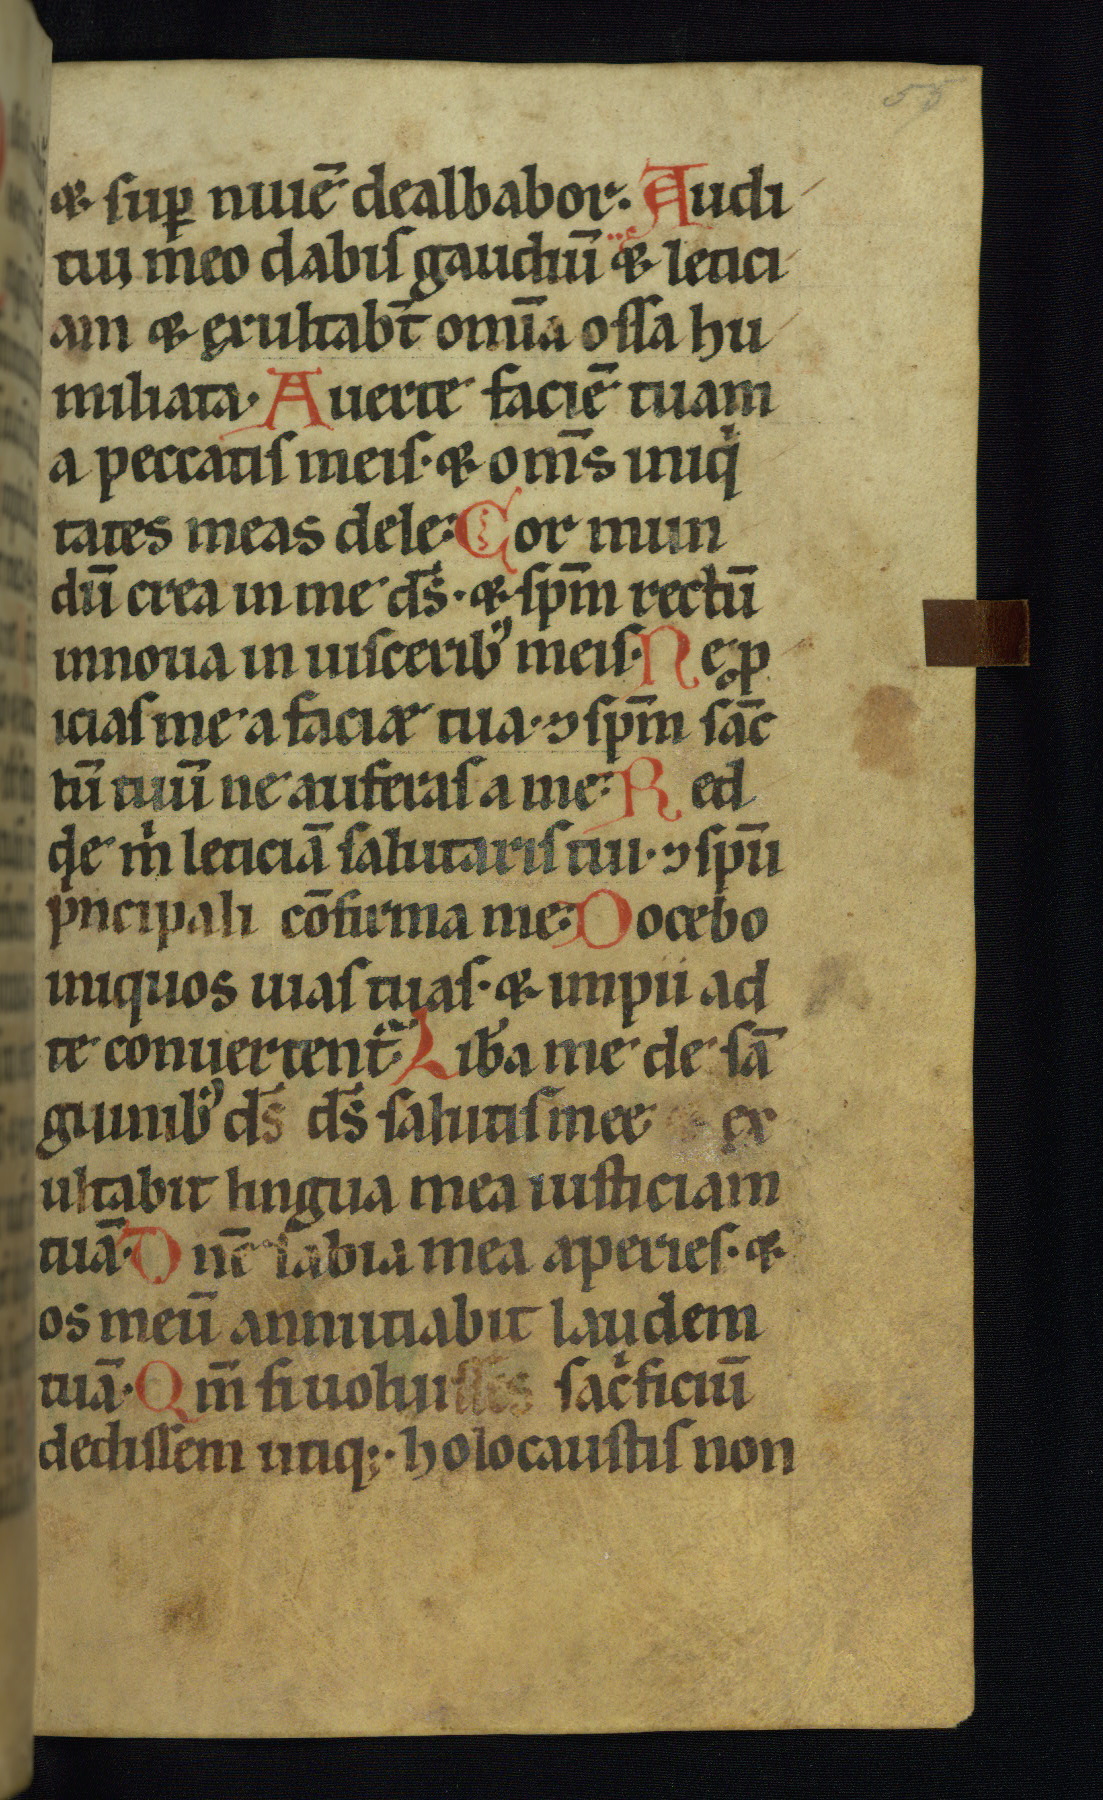 55
& sup niuē dealbabor. Audi
tui meo dabis gaudiū & letici
am & exultabt̄ omīa ossa hu
miliata. Auerte faciē tuam
a peccatis meis. & om̄s iniqͥ
tates meas dele: Cor mun
dū crea in me ds̄. & spm̄ rectū
innoua in uisceribꝰ meis. Ne ꝓ
icias me a faciæ tua. ⁊ spm̄ sāc
tū tuū ne auferas a me: Red
de mͥ leticiā salutaris tui. ⁊ spū
pͥncipali cōfirma me: Docebo
iniquos uias tuas. & impii ad
te conuertent̄ Liba me de sā
guinibꝰ ds̄ ds̄ salutis mee ex
ultabit lingua mea iusticiam
tuā. Dne̅ labia mea aperies. &
os meū annutiabit laudem
tuā. Qm̄ si uoluisses sacͥficiū
dedissem utiqꝫ. holocaustis non